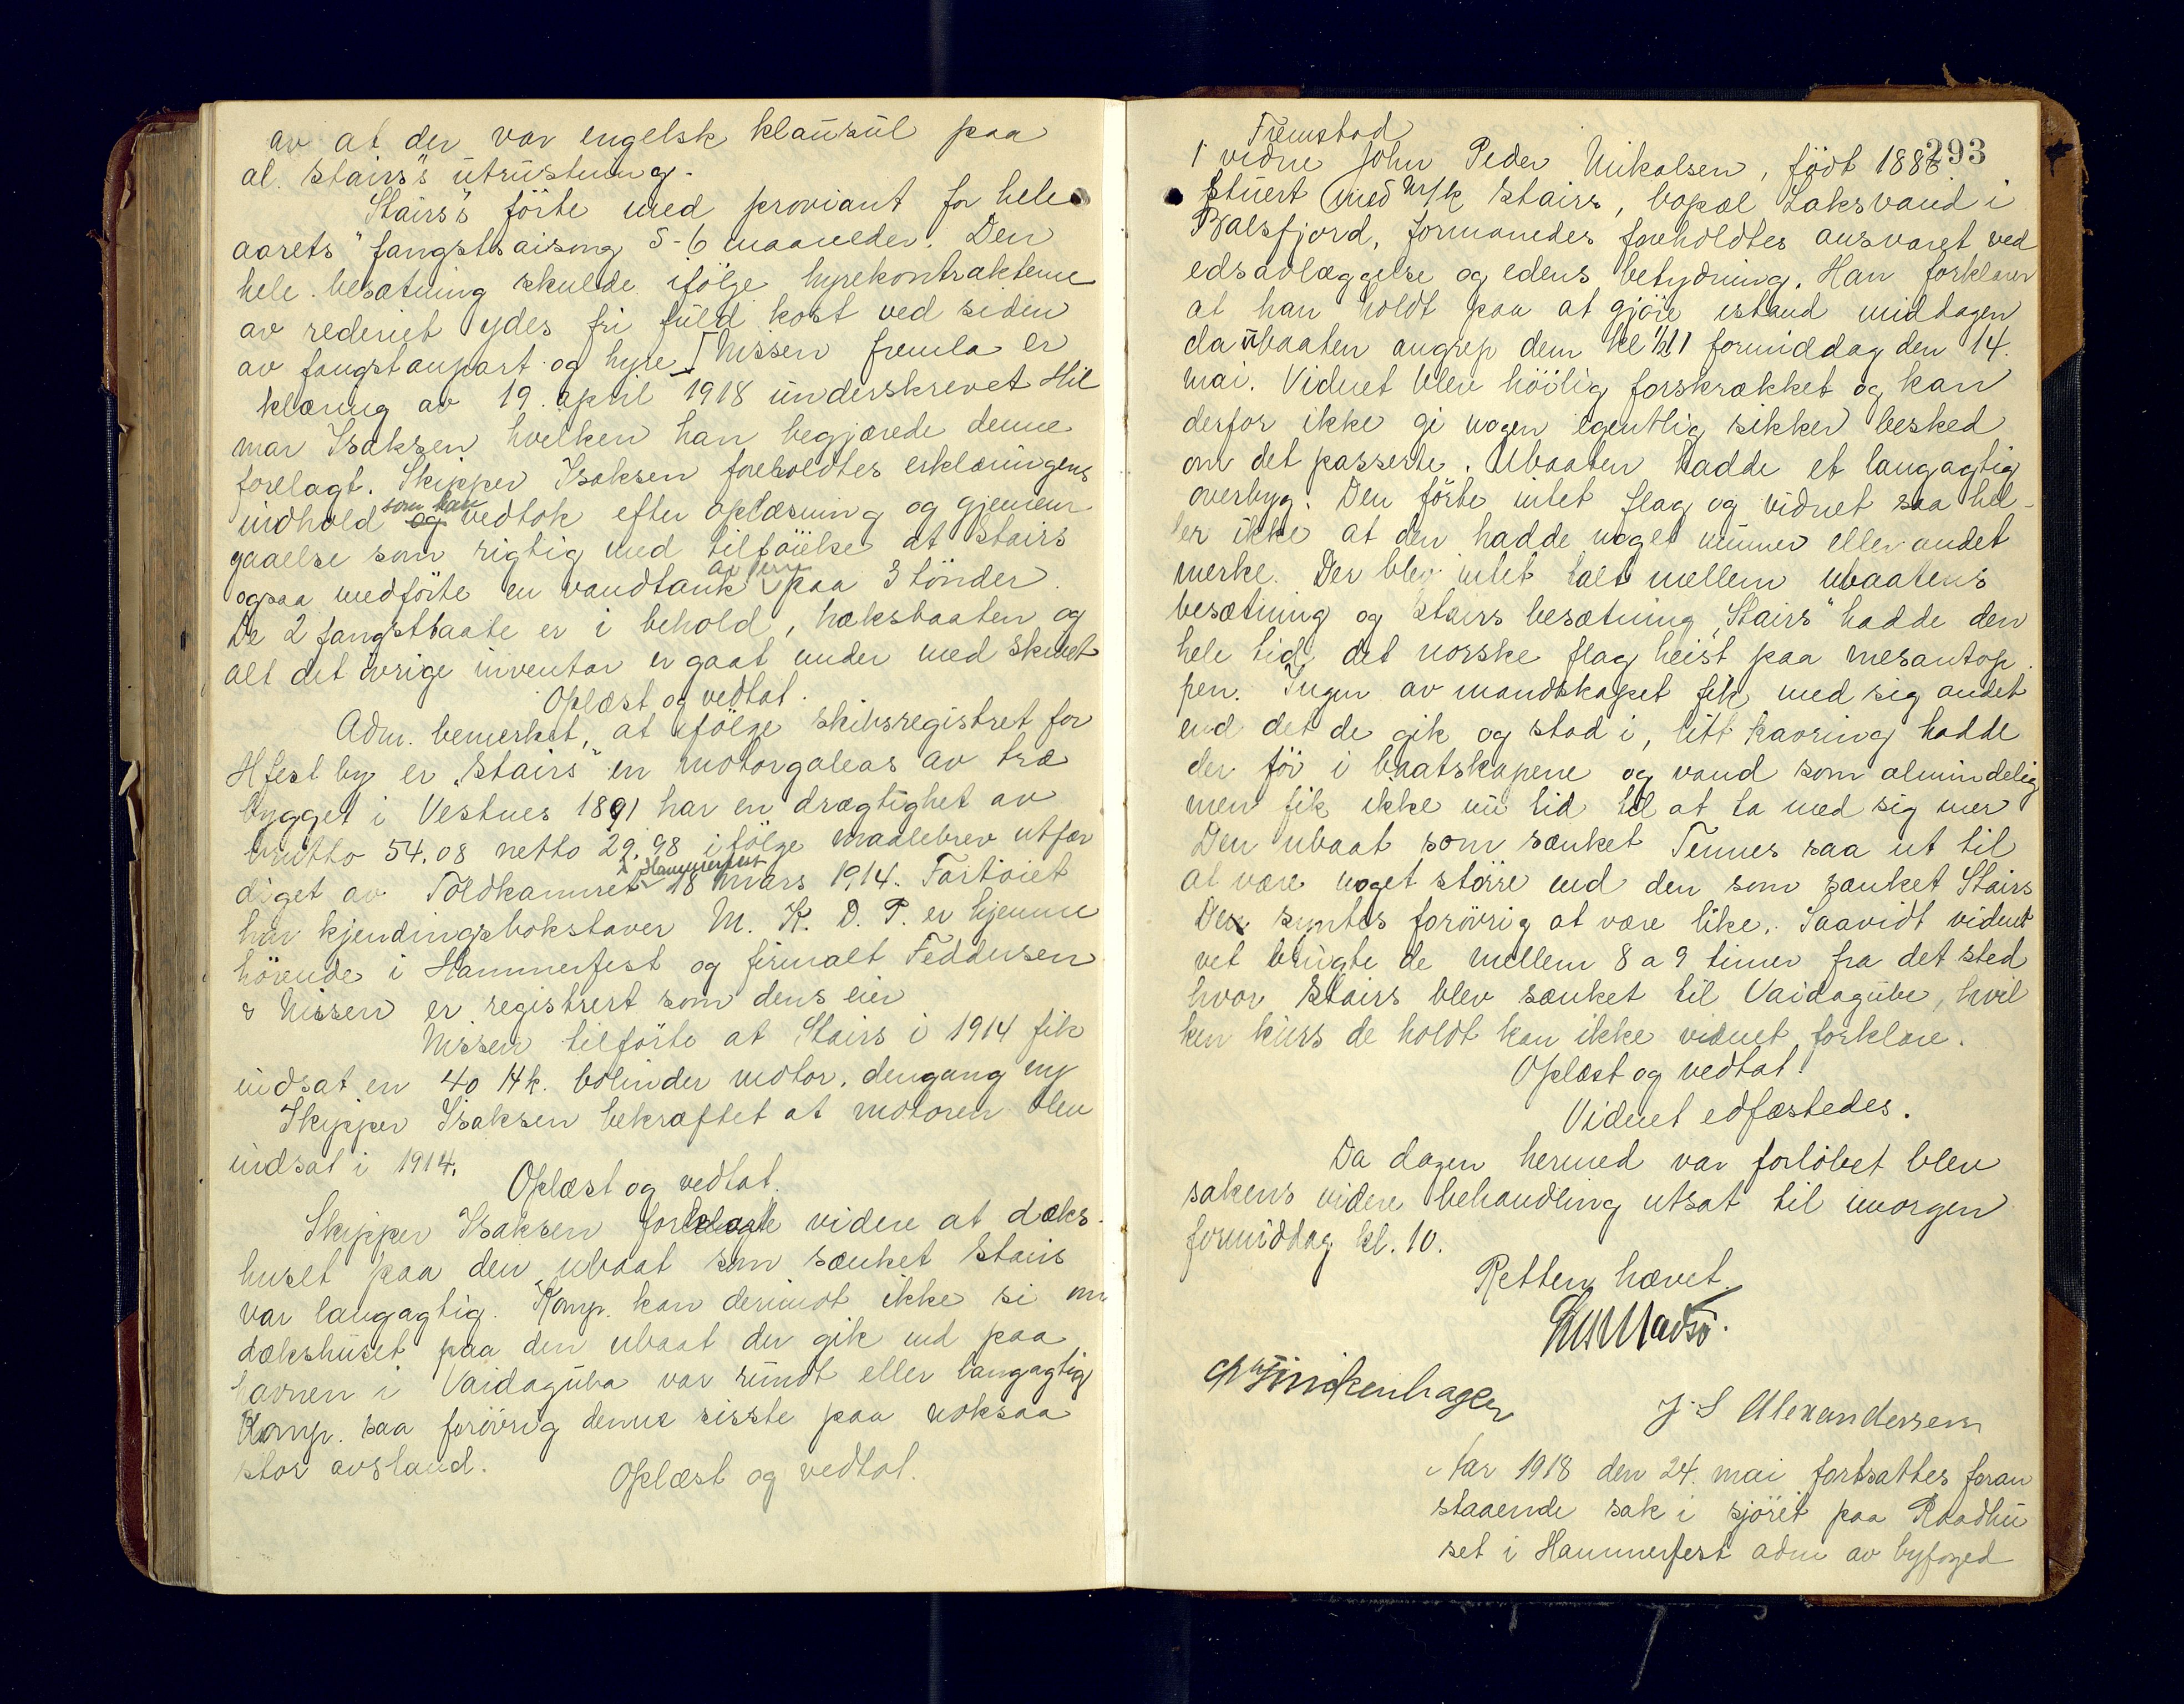 av at der var engelsk klausul paa
al. Stairs's utrustning.
Stairs's förte med proviant for hele
aarets fangstsaisong 5-6 maaneder. Den
hele besætning skulde ifölge hyrekontrakterne
av rederiet ydes fri fuld kost ved siden
av fangstanpart og hyre. Nissen fremla er
klæring av 19. april 1918 underskrevet Hil
mar Isaksen hvilken han begjærede denne
forelagt. Skipper Isaksen foreholdtes erklæringens
indhold som han vedtok efter oplæsning og gjennem
gaaelse som rigtig med tilföielse at Stairs
ogsaa medförte en vandtank av jern paa 3 tönder.
De 2 fangstbaate er i behold, hæksbaaten og
alt det övrige inventar er gaat under med skibet
Oplæst og vedtat.
Adm. bemerket, at ifölge skibsregistret for
Hfest by er „Stairs" en motorgaleas av træ
bygget i Vestnes 1891 har en drægtighet av
brutto 54.08 netto 29.98 ifölge maalebrev utfær
diget av Toldkamret Hammerfest 18 mars 1914. Fartöiet
har kjendingsbokstaver M. K. D. P. er hjemme
hörende i Hammerfest og firmaet Feddersen
& Nissen er registrert som dens eier
Nissen tilförte at Stairs i 1914 fik
indsat en 40 Hk. bolinder motor, dengang ny
Skipper Isaksen bekræftet at motoren blev
indsat i 1914.
Oplæst og vedtat.
Skipper Isaksen forklarte videre at dæks-
huset paa den ubaat som sænket Stairs
var langagtig. Komp. kan derimot ikke si om
dækshuset paa den ubaat der gik ind paa
havnen i Vaidaguba var rundt eller langagtig
Komp. saa forövrig denne sisste paa noksaa
stor avstand.
Oplæst og vedtat.
293
Fremstod
1 vidne John Peder Nikolsen, födt 1882
Stuert med M/k Stairs, bopæl Laksvand i
Balsfjord, formanedes foreholdtes ansvaret ved
edsavlæggelse og edens betydning. Han forklarer
at han holdt paa at gjöre istand middagen
da ubaaten angrep dem kl 1/2 11 formiddag den 14.
mai. Vidnet blev höilig forskrækket og kan
derfor ikke gi nogen egentlig sikker besked
om det passerte. Ubaaten hadde et langagtig
overbyg. Den förte intet flag og vidnet saa hel-
ler ikke at den hadde noget nummer eller andet
merke. Der blev intet talt mellem ubaatens
besætning og Stairs besætning „Stairs" hadde den
hele tid det norske flag heist paa mesantop
pen. Ingen av mandskapet fik med sig andet
end det de gik og stod i, litt kavring hadde
der för i baatskapene og vand som almindelig
men fik ikke nu tid til at ta med sig mer
Den ubaat som sænket Tennes saa ut til
at være noget större end den som sænket Stairs
De syntes forövrig at være like. Saavidt vidnet
vet brugte de mellem 8 a 9 timer fra det sted
hvor Stairs blev sænket til Vaidagube, hvil
ken kurs de holdt kan ikke vidnet forklare.
Oplæst og vedtat.
Vidnet edfæstedes.
Da dagen hermed var forlöbet blev
sakens videre behandling utsat til imorgen
formiddag kl. 10.
Retten hævet.
Finckenhagen
J. S Alexandersen
Aar 1918 den 24. mai fortsattes foran
staaende sak i sjöret paa Raadhu
set i Hammerfest adm av byfoged